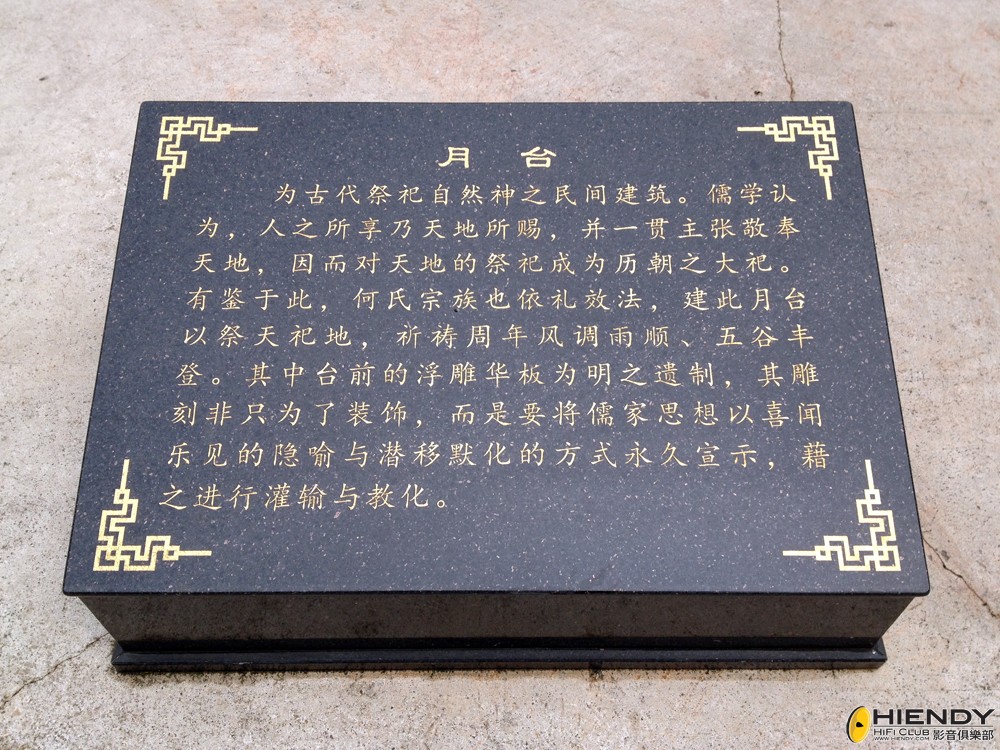 月 台
为古代祭祀自然神之民间建筑。儒学认
为，人之所享乃天地所赐，并一贯主张敬奉
天地，因而对天地的祭祀成为历朝之大祀。
有鉴于此，何氏宗族也依礼效法，建此月台
以祭天祀地，祈祷周年风调雨顺、五谷丰
登。其中台前的浮雕华板为明之遗制，其雕
刻非只为了装饰，而是要将儒家思想以喜闻
乐见的隐喻与潜移默化的方式永久宣示，藉
之进行灌输与教化。
HIENDY
HiFi Club 影音俱樂部
WWW.HIENDY.COM